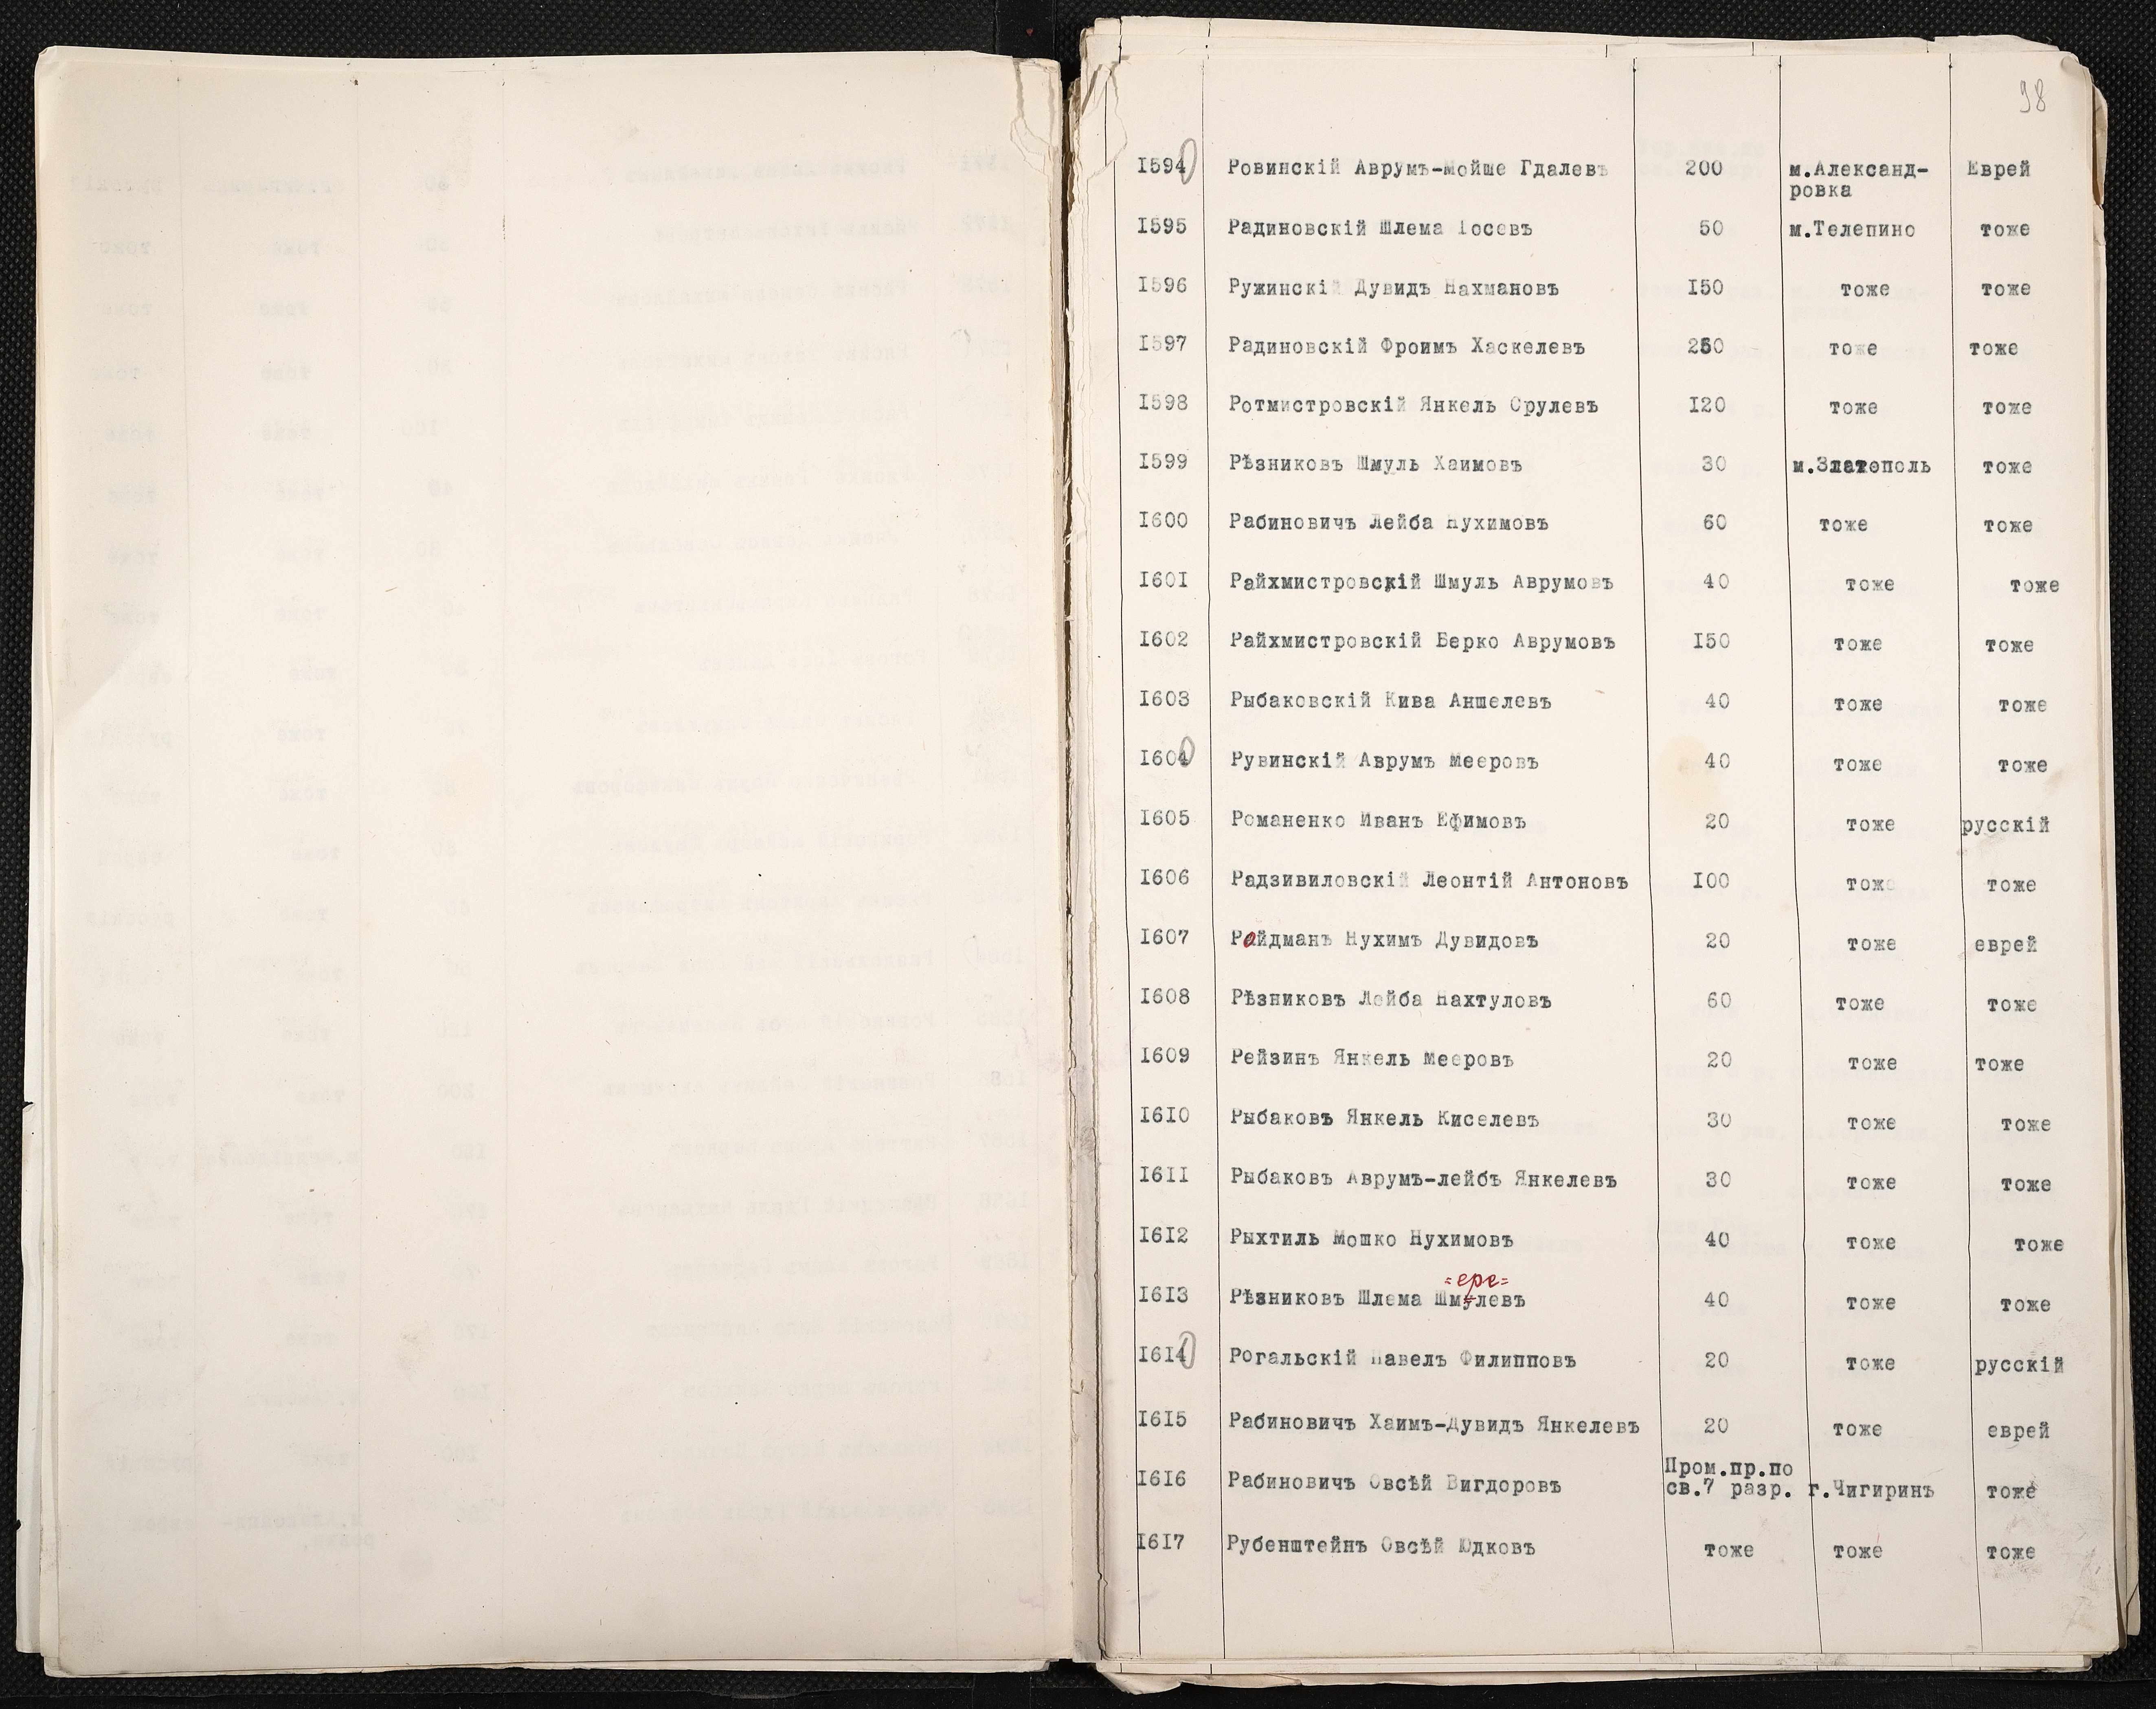 98
1594 Ровинскій Аврумъ-Мойше Гдалевъ 200 м.Александ- Еврей
ровка
1595 Радиновскій Шлема Іосевъ 50 м.Телепино тоже
1596 Ружинскій Дувидъ Нахмановъ 150 тоже тоже
1597 Радиновскій Фроимъ Хаскелевъ тоже тоже
1598 Ротмистровскій Янкель Срулевъ 120 тоже тоже
1599 Рѣзниковъ Шмуль Хаимовъ 30 м.Златополь тоже
1600 Рабиновичъ Лейба Нухимовъ 60 тоже тоже
1601 Райхмистровскій Шмуль Аврумовъ 40 тоже тоже
1602 Райхмистровскій Берко Аврумовъ 150 тоже тоже
1603 Рыбаковскій Кива Аншелевъ 40 тоже тоже
1604 Рувинскій Аврумъ Мееровъ 40 тоже тоже
1605 Романенко Иванъ Ефимовъ 20 тоже русскій
1606 Радзивиловскій Леонтій Антоновъ 100 тоже тоже
1607 Ройдманъ Нухимъ Дувидовъ 20 тоже еврей
1608 Рѣзниковъ Лейба Нахтуловъ 60 тоже тоже
1609 Рейзинъ Янкель Мееровъ 20 тоже тоже
1610 Рыбаковъ Янкель Киселевъ 30 тоже тоже
1611 Рыбаковъ Аврумъ-лейбъ Янкелевъ 30 тоже тоже
1612 Рыхтиль Мошко Нухимовъ 40 тоже тоже
=ере=
1613 Рѣзниковъ Шлема Шмулевъ 40 тоже тоже
1614 Рогальскій Павелъ Филипповъ 20 тоже русскій
1615 Рабиновичъ Хаимъ-Дувидъ Янкелевъ 20 тоже еврей
Пром.пр.по
1616 Рабиновичъ Овсѣй Вигдоровъ св.7 разр. г.Чигиринъ тоже
1617 Рубенштейнъ Овсѣй Юдковъ тоже тоже тоже